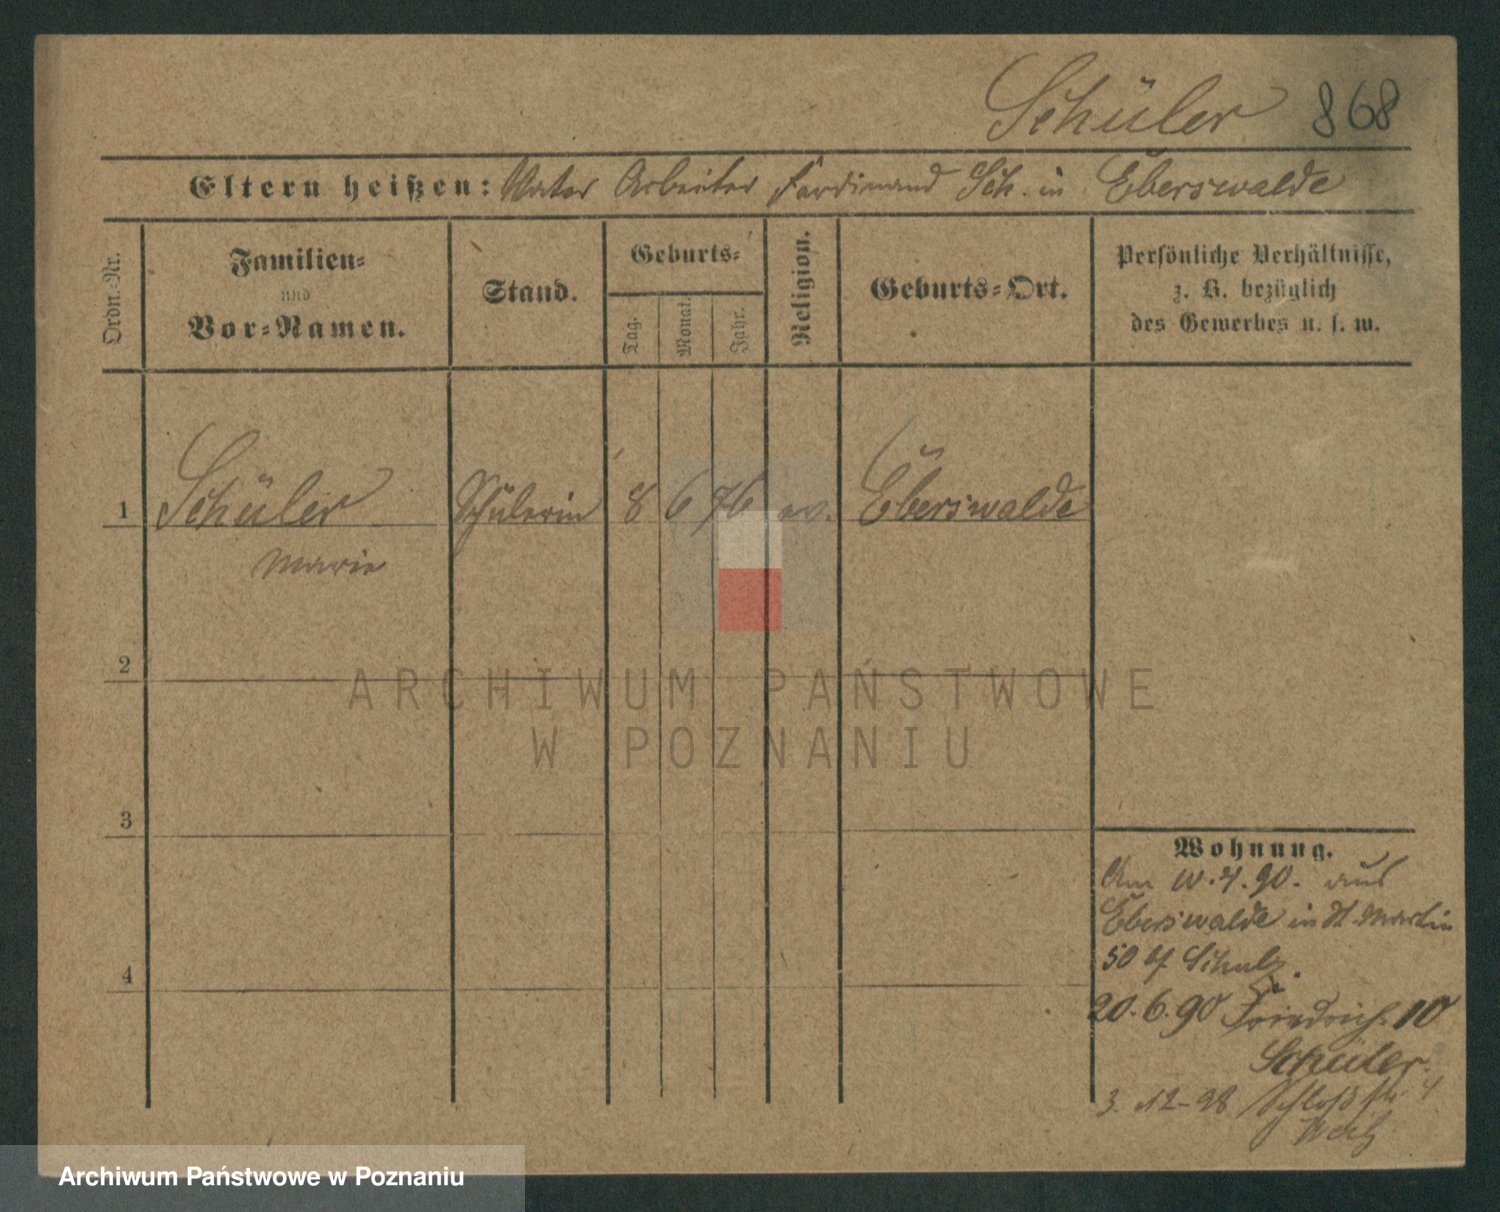 Schüler 868
Eltern heißen: Vater Arbeiter Ferdinand Sch. in Eberswalde
Ordn.-Nr.
Familien-
und
Vor-Namen.
Stand.
Geburts-
Tag.
Monat.
Jahr.
Religion.
Geburts-Ort.
Persönliche Verhältnisse,
z. B. bezüglich
des Gewerbes u. s. w.
1 Schüler Schülerin 8 6 76 ev. Eberswalde
Marie
2
3
4
Wohnung.
Am 10.4.90. aus
Eberswalde in St. Martin
50 Schulz.
20.6.90 Friedrich. 10
Schüler.
3. 12-98 Schloßstr. 4
ARCHIWUM PAŃSTWOWE
W POZNANIU
Archiwum Państwowe w Poznaniu